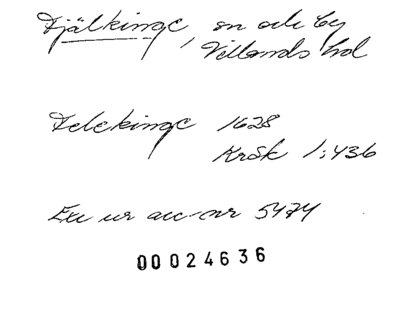 Fjälkinge, sn och by
Villands hd
Felekinge 1628
KrSk 1:436
Exc ur acc-nr 5474
00024636